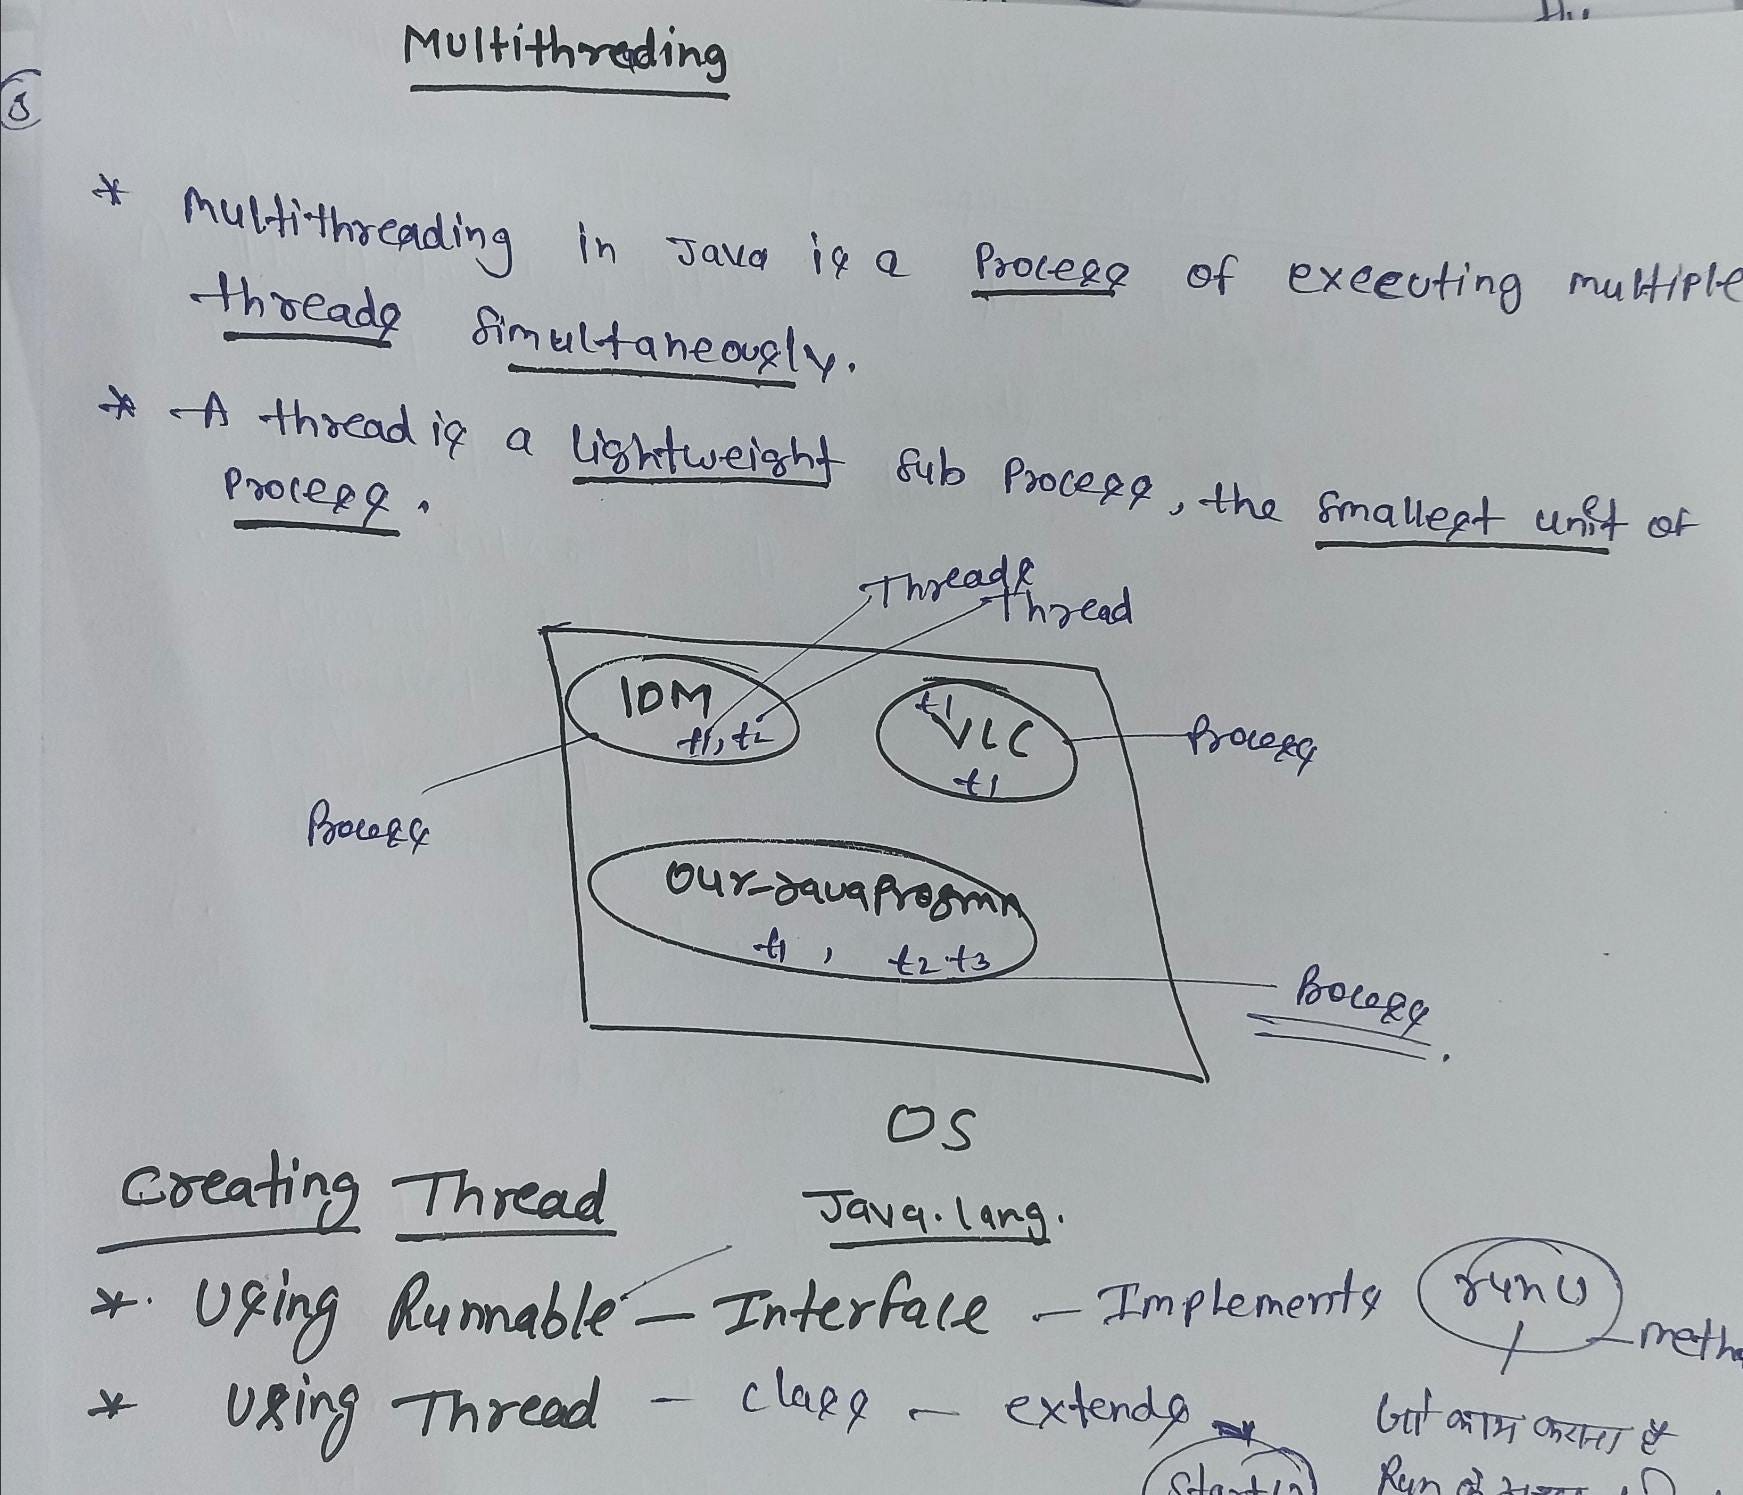 Multithreading
* Multithreading in Java is a Process of executing multiple
threads Simultaneously.
* A thread is a lightweight Sub Process, the Smallest unit of
Process.
Threads
Thread
IDM
t1, t2
t1
VLC
t1
Process
Process
Our-Java Progmn
t1 , t2 t3
Process
OS
Creating Thread
Java.lang.
* Using Runnable - Interface - Implements run()
* Using Thread - class - extends
जो काम कराना है
Start()
Run